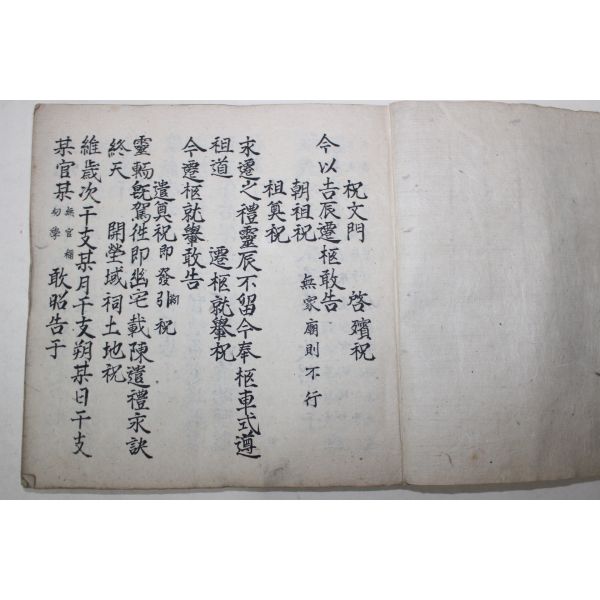 祝文門 啓殯祝
今以吉辰遷柩敢告
朝祖祝 無家廟則不行
祖奠祝
永遷之禮靈辰不留今奉柩車式遵
祖道 遷柩就轝祝
今遷柩就轝敢告
遣奠祝即發引祝
靈輀旣駕徃即幽宅載陳遣禮永訣
終天 開塋域祠土地祝
維歲次干支某月干支朔某日干支
某官某 無官稱幼學 敢昭告于